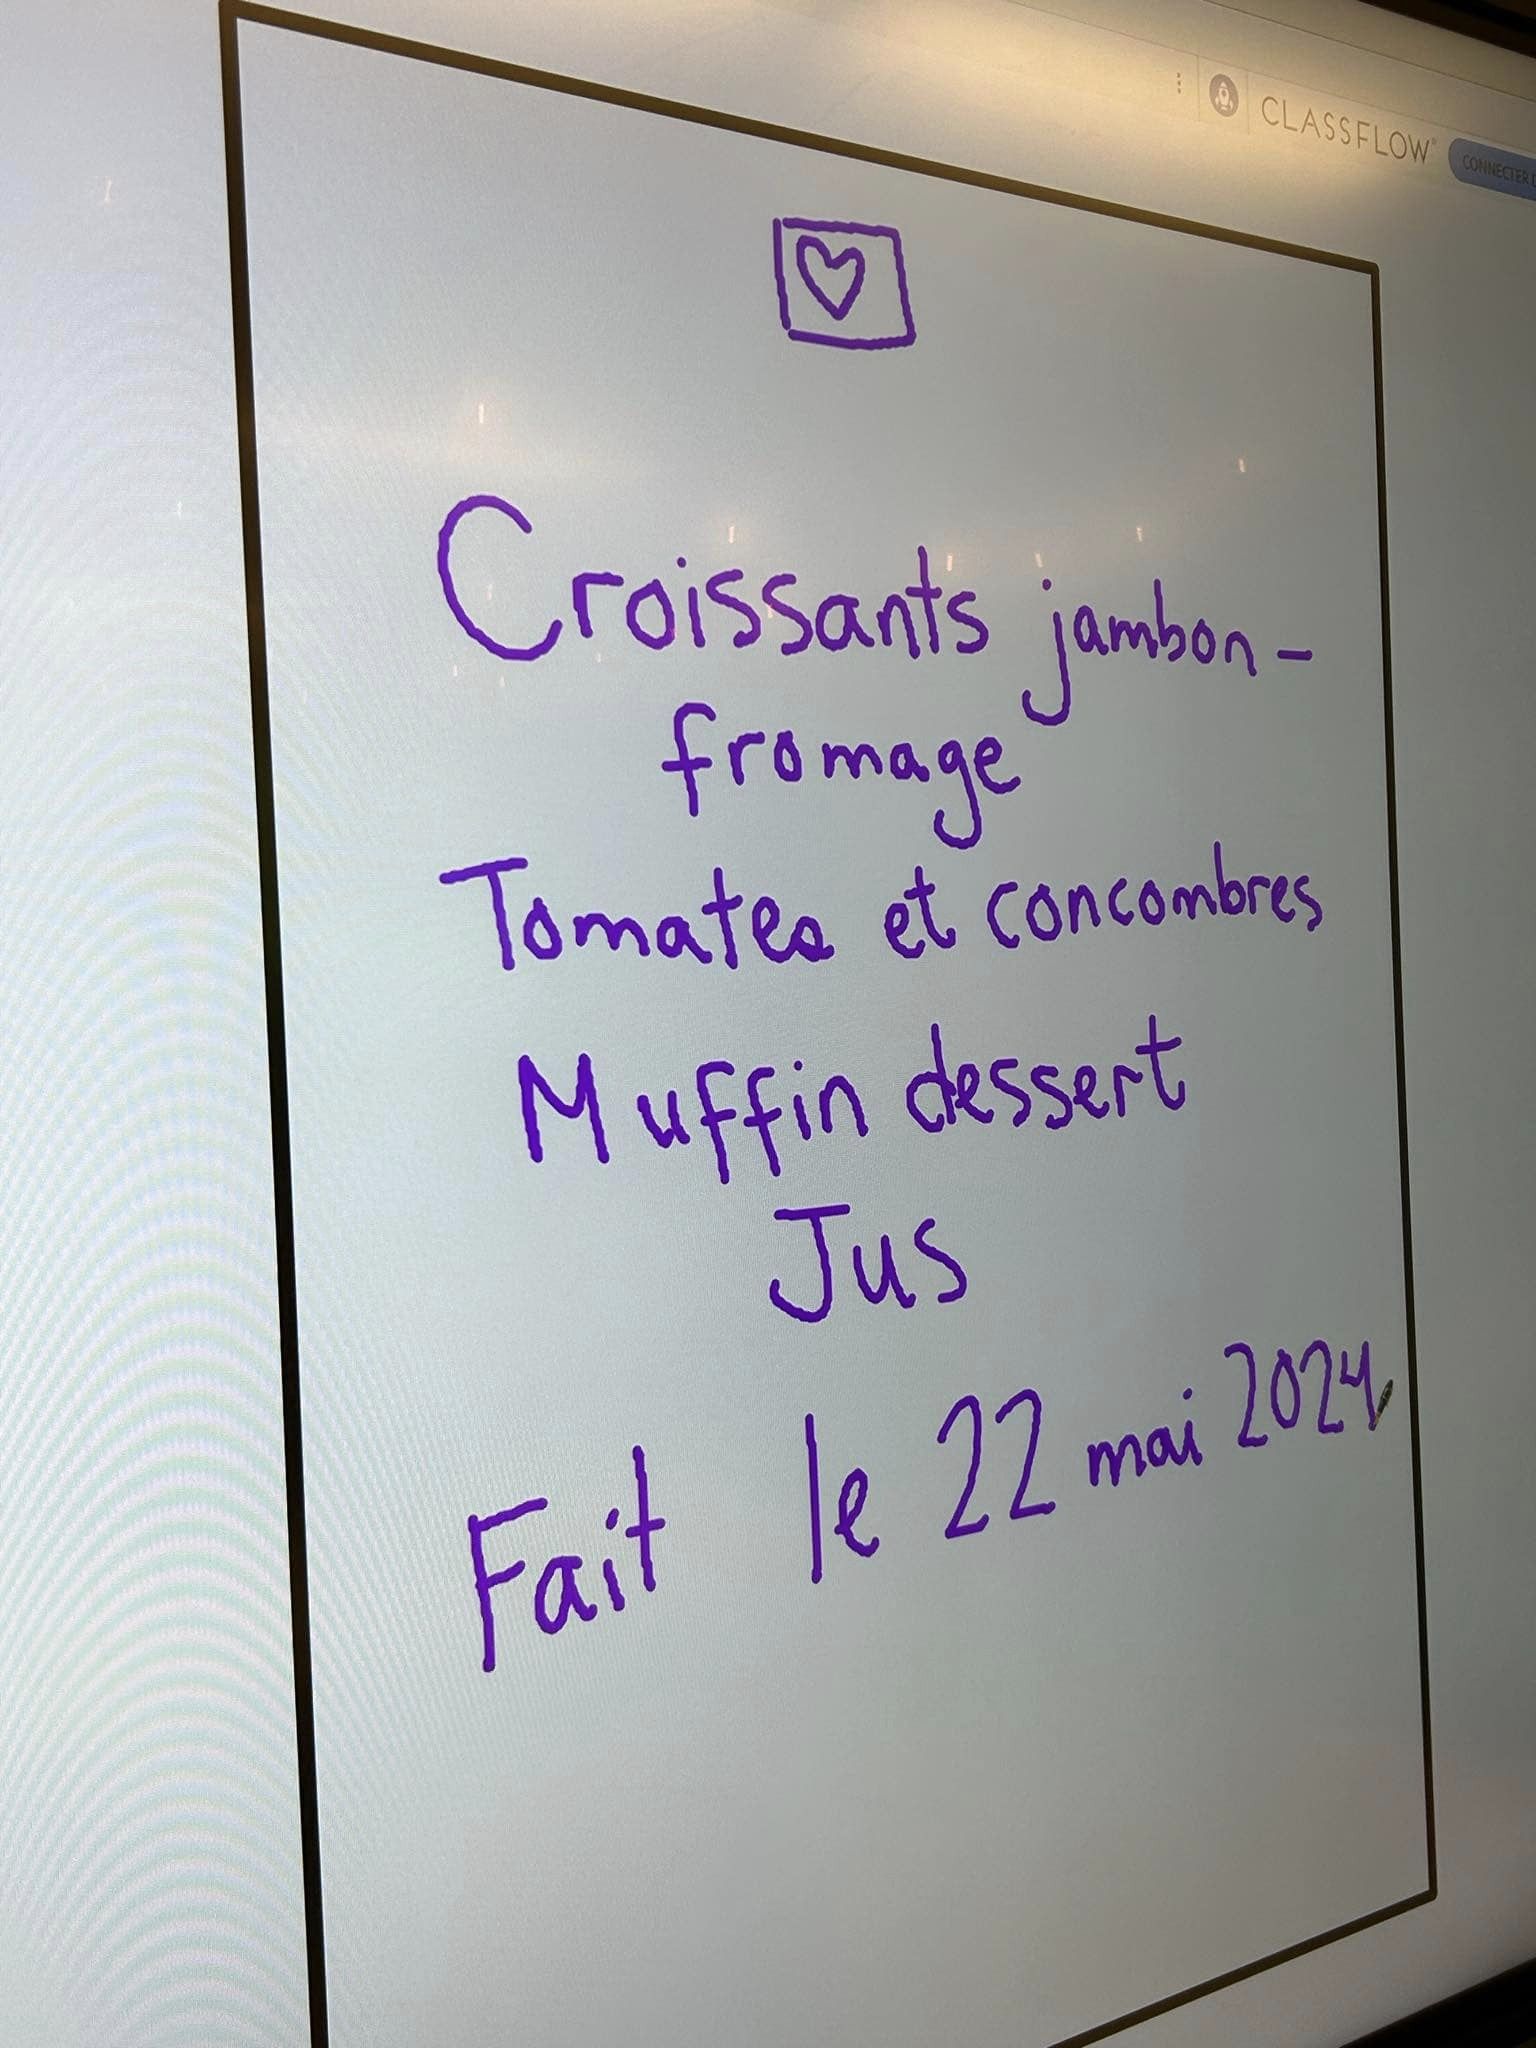 CLASSFLOW
Croissants jambon-
fromage
Tomates et concombres
Muffin dessert
Jus
Fait le 22 mai 2024